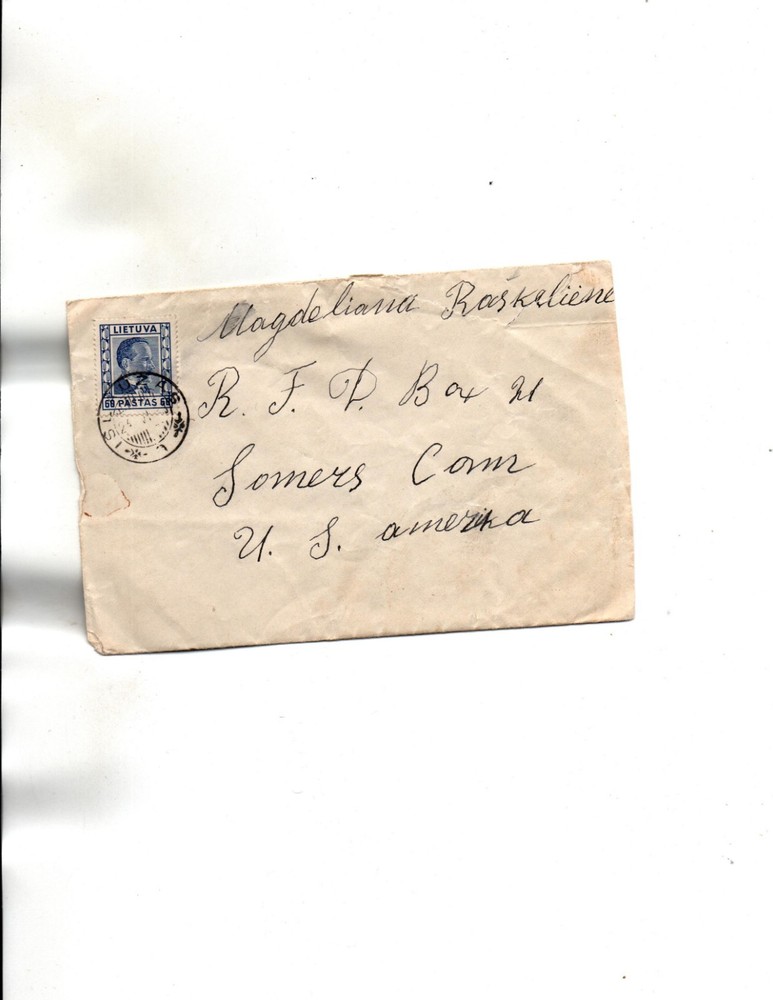 Magdeliana Raskeliene
LIETUVA
60 PAŠTAS 60
R. F. D. Box 21
Somers Conn
U. S. amerika